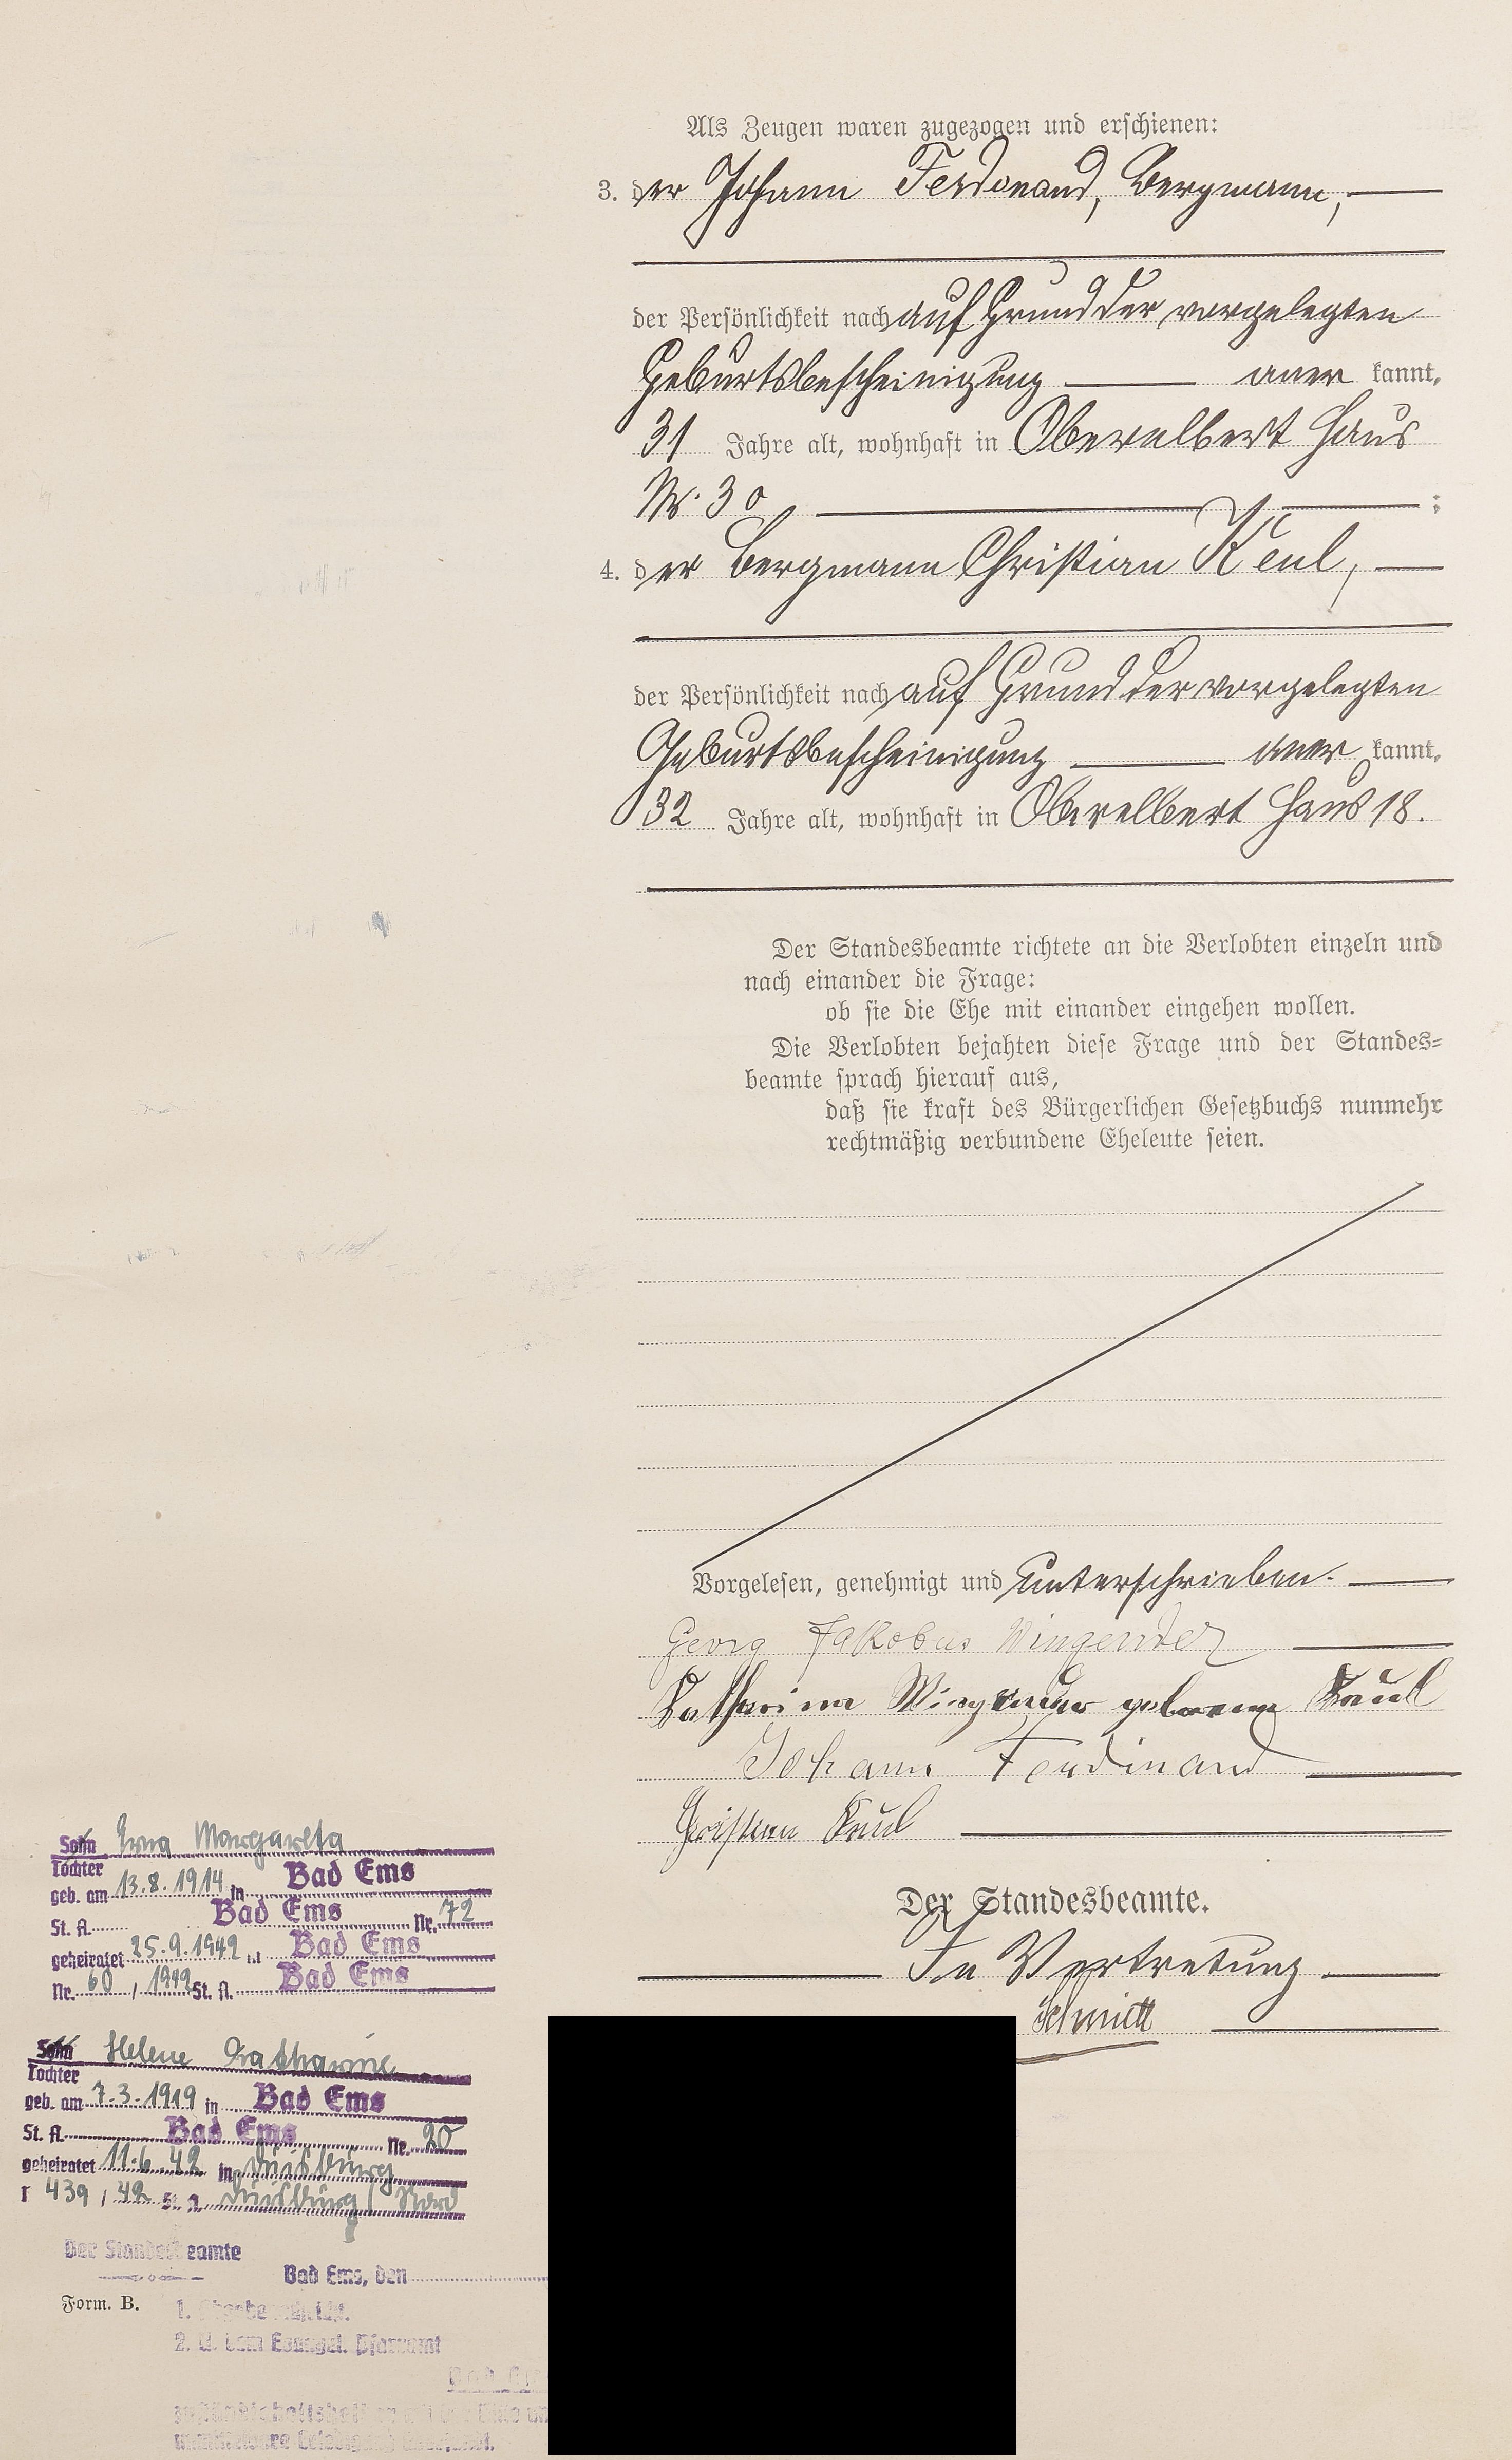 Als Zeugen waren zugezogen und erschienen:
3. der Johann Ferdinand, Bergmann,
der Persönlichkeit nach auf Grund der vorgelegten
Geburtsbescheinigung aner kannt,
31 Jahre alt, wohnhaft in Oberelbert Haus
Nr. 30 ;
4. der Bergmann Christian Keul,
der Persönlichkeit nach auf Grund der vorgelegten
Geburtsbescheinigung aner kannt,
32 Jahre alt, wohnhaft in Oberelbert Haus 18.
Der Standesbeamte richtete an die Verlobten einzeln und
nach einander die Frage:
ob sie die Ehe mit einander eingehen wollen.
Die Verlobten bejahten diese Frage und der Standes-
beamte sprach hierauf aus,
daß sie kraft des Bürgerlichen Gesetzbuchs nunmehr
rechtmäßig verbundene Eheleute seien.
Vorgelesen, genehmigt und unterschrieben.
Georg Jakobus Wingender
Katharina Wingender geborene Keul
Johann Ferdinand
Christian Keul
Der Standesbeamte.
In Vertretung
Schmitt
Sohn Margareta
Tochter
geb. am 13.8.1914 in Bad Ems
St. A. Bad Ems Nr. 72
geheiratet 25.9.1942 in Bad Ems
Nr. 60 / 1942 St. A. Bad Ems
Sohn Helene Katharine
Tochter
geb. am 7.3.1919 in Bad Ems
St. A. Bad Ems Nr. 20
geheiratet 11.6.42 in Duisburg
r 439 / 42 St. A. Duisburg / Nord
Der Standesbeamte
Bad Ems, den
Form. B.
1.
2. U. dem Evangel. Pfarramt